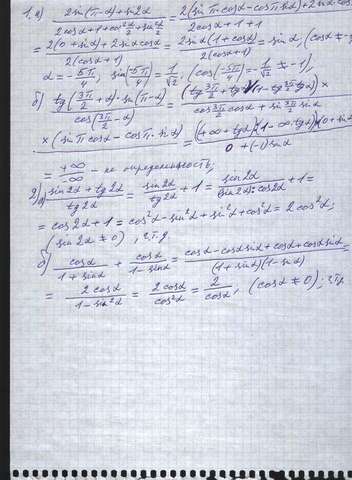 1. а) (2sin(π-α)+sin2α)/(2cosα+1+cos²α/2+sin²α/2) = (2(sinπcosα-cosπsinα)+2sinα cosα)/(2cosα+1+1)
= (2(0+sinα)+2sinαcosα)/(2(cosα+1)) = (2sinα(1+cosα))/(2(cosα+1)) = sinα, (cosα ≠
α = -5π/4, sin(-5π/4) = 1/√2, (cos(-5π/4) = -1/√2 ≠ -1),
б) (tg(3π/2+α)·sin(π-α))/cos(3π/2-α) = (tg3π/2+tgα)/(1-tg3π/2 tgα) ×
cos3π/2cosα + sin3π/2sinα
× (sinπcosα-cosπ·sinα) = (+∞+tgα)(1-∞·tgα)(0+sinα)
0+(-1)sinα
= +∞/-∞ - не определенность;
2) а) (sin2α+tg2α)/tg2α = sin2α/tg2α + 1 = sin2α/(sin2α):cos2α + 1 =
= cos2α+1 = cos²α-sin²α+sin²α+cos²α = 2cos²α;
(sin2α ≠ 0), ч.т.д.
б) cosα/(1+sinα) + cosα/(1-sinα) = (cosα-cosαsinα+cosα+cosαsinα)/((1+sinα)(1-sinα)) =
= 2cosα/(1-sin²α) = 2cosα/cos²α = 2/cosα, (cosα ≠ 0); ч.т.д.